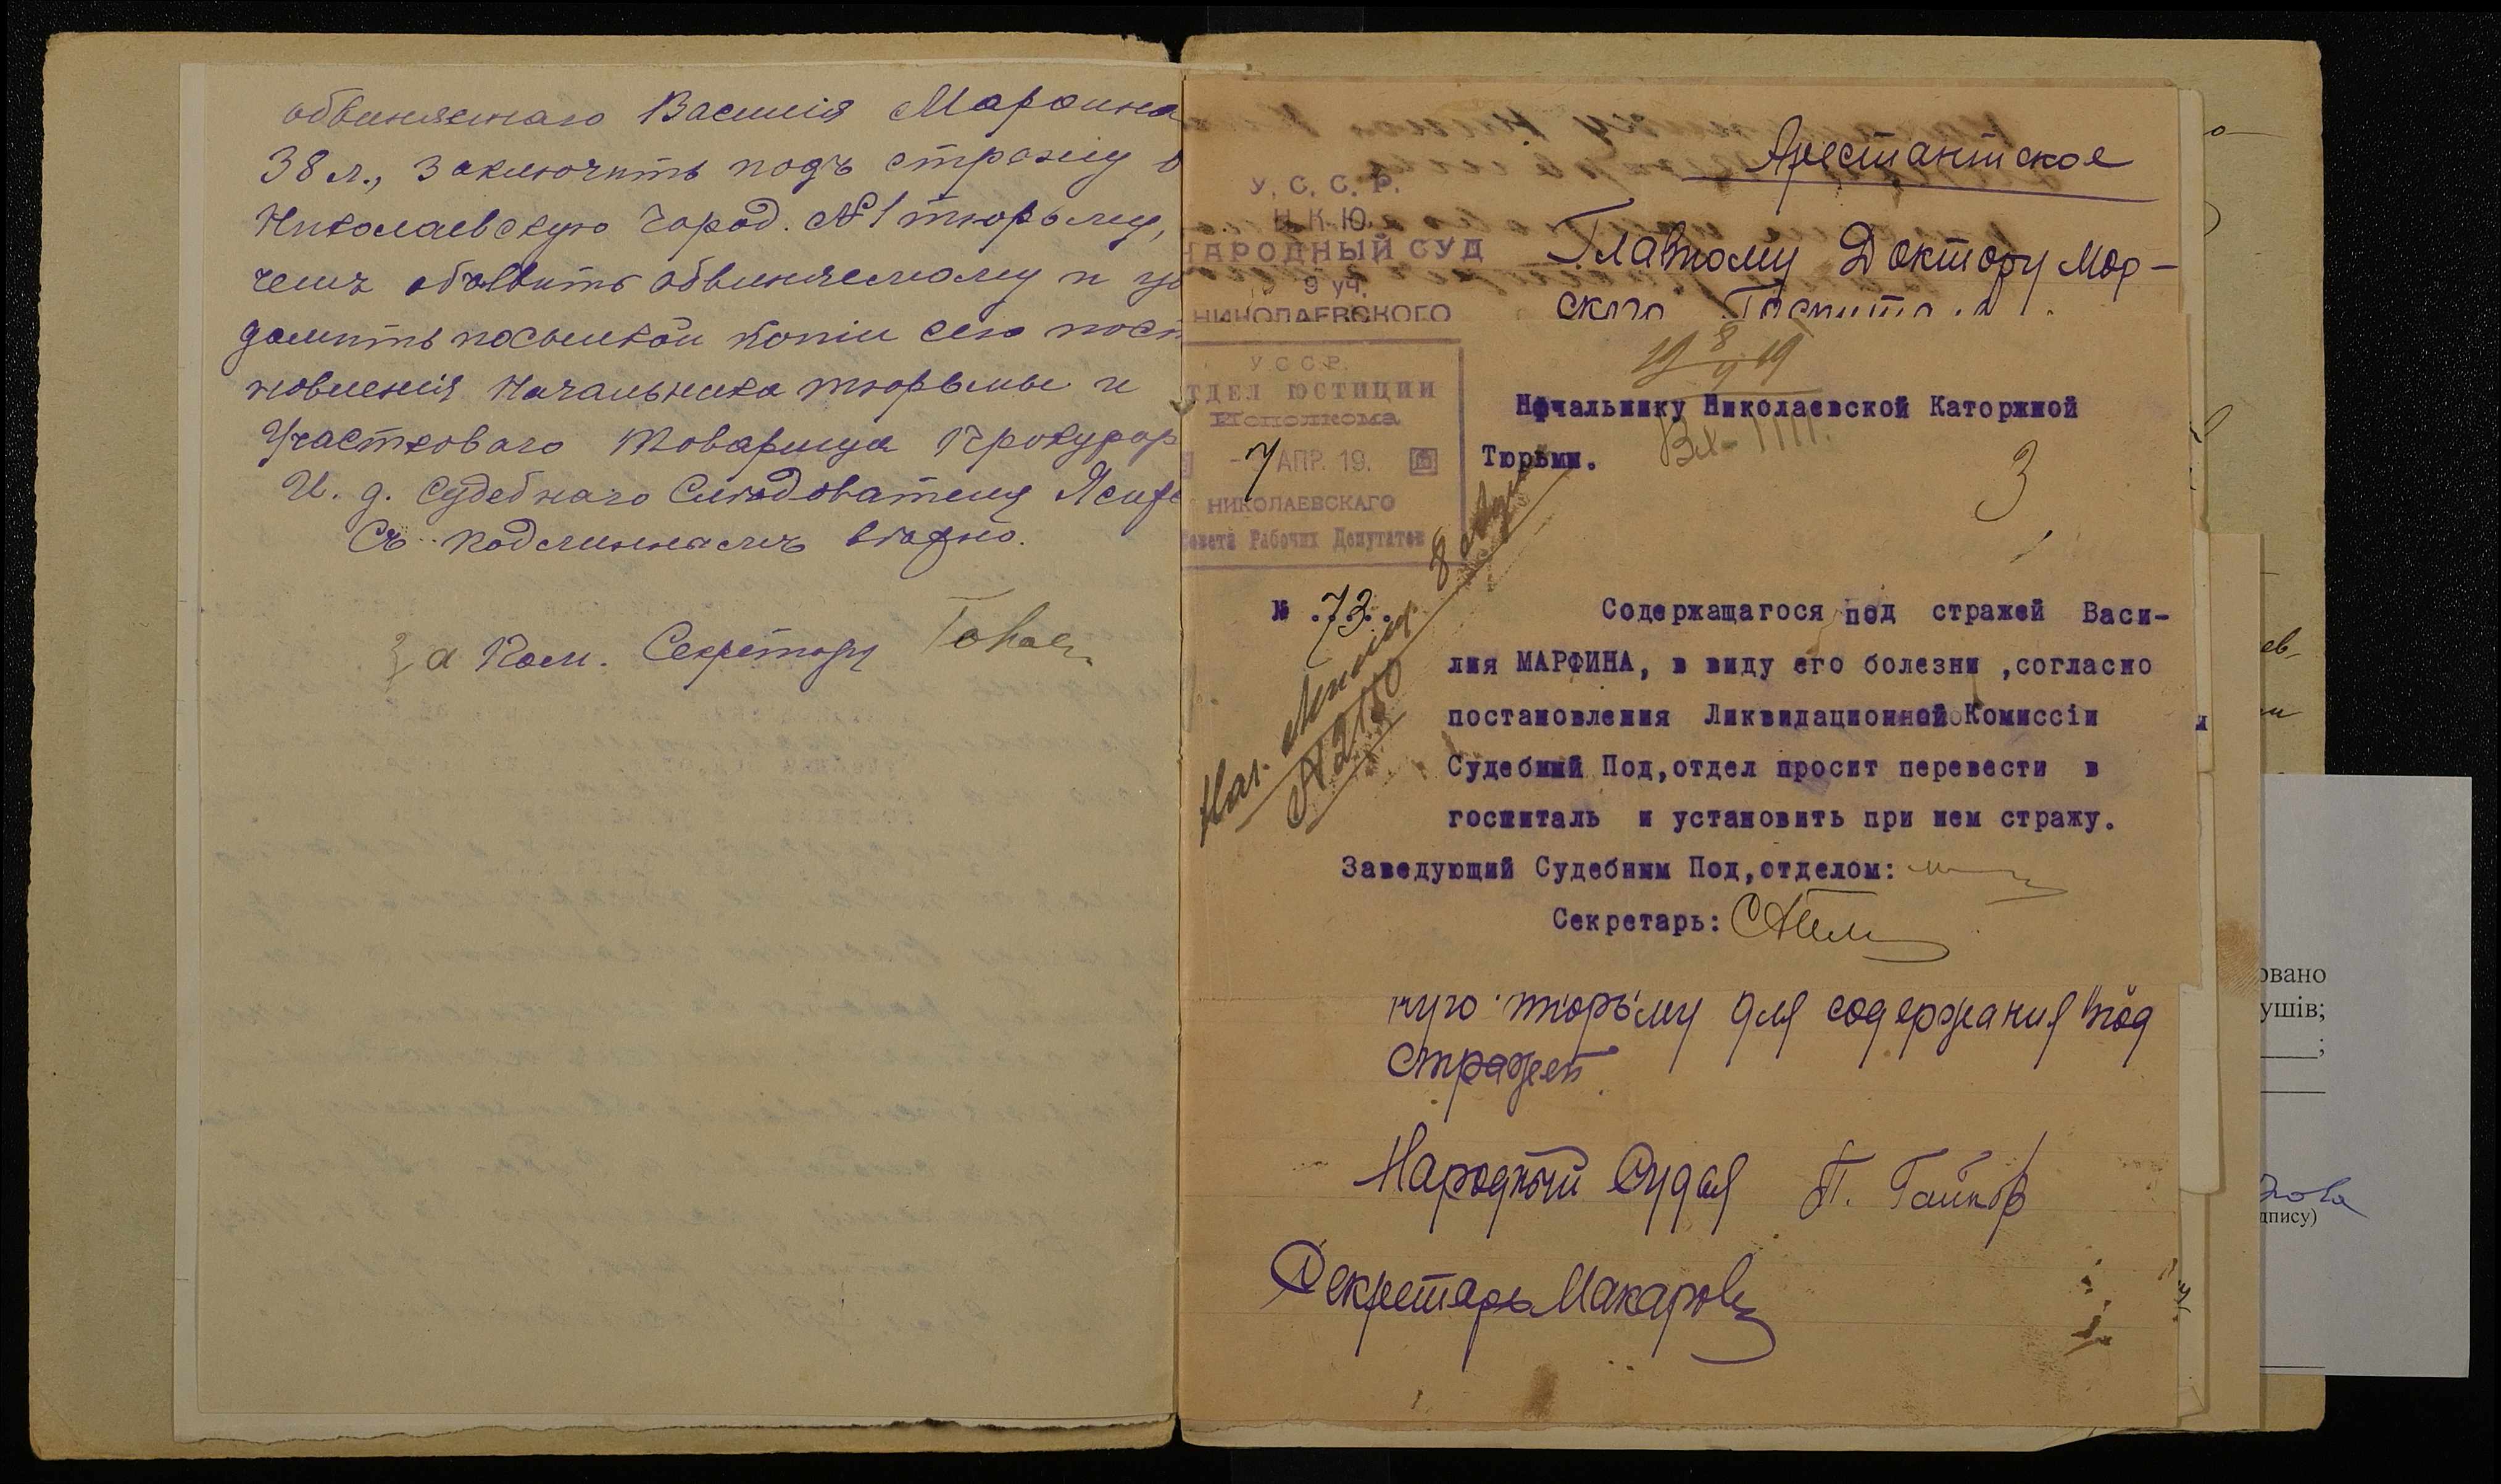 обвиняемаго Василія Марфина
38 л., заключить подъ стражу в
Николаевскую город. №1 тюрьму,
чемъ объявить обвиняемому и уве
домить посылкой копіи сего поста
новленія Начальника тюрьмы и
Участковаго Товарища Прокурор
И. д. Судебнаго Следователя
Съ подлиннымъ вѣрно.
За Ком. Секретарь
Арестантское
У. С. С. Р.
Н. К. Ю.
НАРОДНЫЙ СУД
9 уч.
НИКОЛАЕВСКОГО
Главному Доктору Мор-
ского Госпиталя.
У.С.С.Р.
ТДЕЛ ЮСТИЦИИ
Исполкома
7 АПР. 19.
НИКОЛАЕВСКАГО
Совета Рабочих Депутатов
19 8/9 19
Начальнику Николаевской Каторжной
Тюрьмы.
3
№ 73.
Нач.
№ 2150
Содержащагося под стражей Васи-
лия МАРФИНА, в виду его болезни ,согласно
постановления Ликвидационной Комиссіи
Судебный Под,отдел просит перевести в
госпиталь и установить при нем стражу.
Заведующий Судебным Под,отделом:
Секретарь:
ную тюрьму для содержания под
стражей.
Народный Судья П. Гайков
Секретарь Макаров
овано
ушів;
;
дпису)